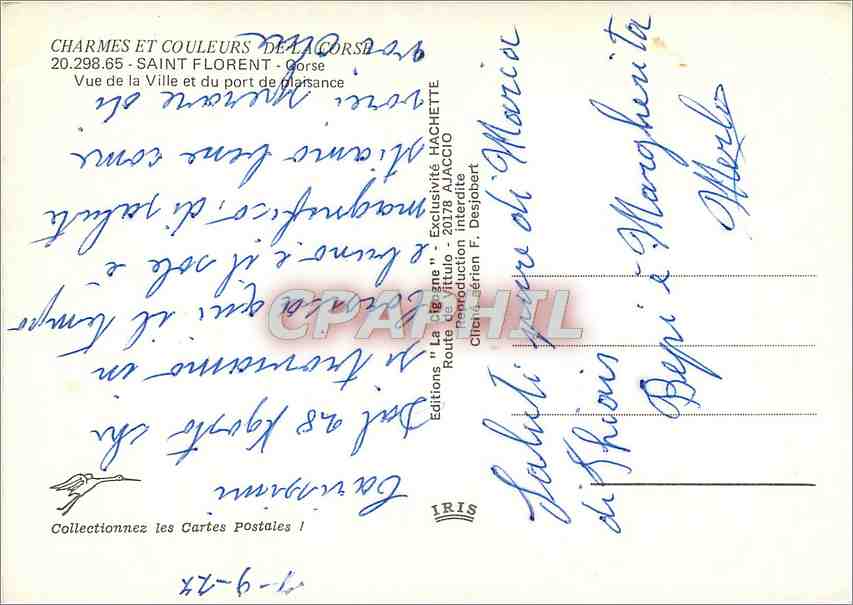 CHARMES ET COULEURS DE LA CORSE
20.298.65 - SAINT FLORENT - Corse
Vue de la Ville et du port de plaisance
Editions "La Cigogne" - Exclusivité HACHETTE
Route de Vittulo - 20178 AJACCIO
Reproduction interdite
Cliché aérien F. Desjobert
IRIS
Collectionnez les Cartes Postales !
CPAPHIL
Carissimi
Dal 28 Agosto chi
si troviamo in
Corsica qui il tempo
e il sole e
magnifico, di salute
stiamo bene come
vorei sperare di
voi
Saluti pure di Maria
di
Bepi e Margherita
Merlo